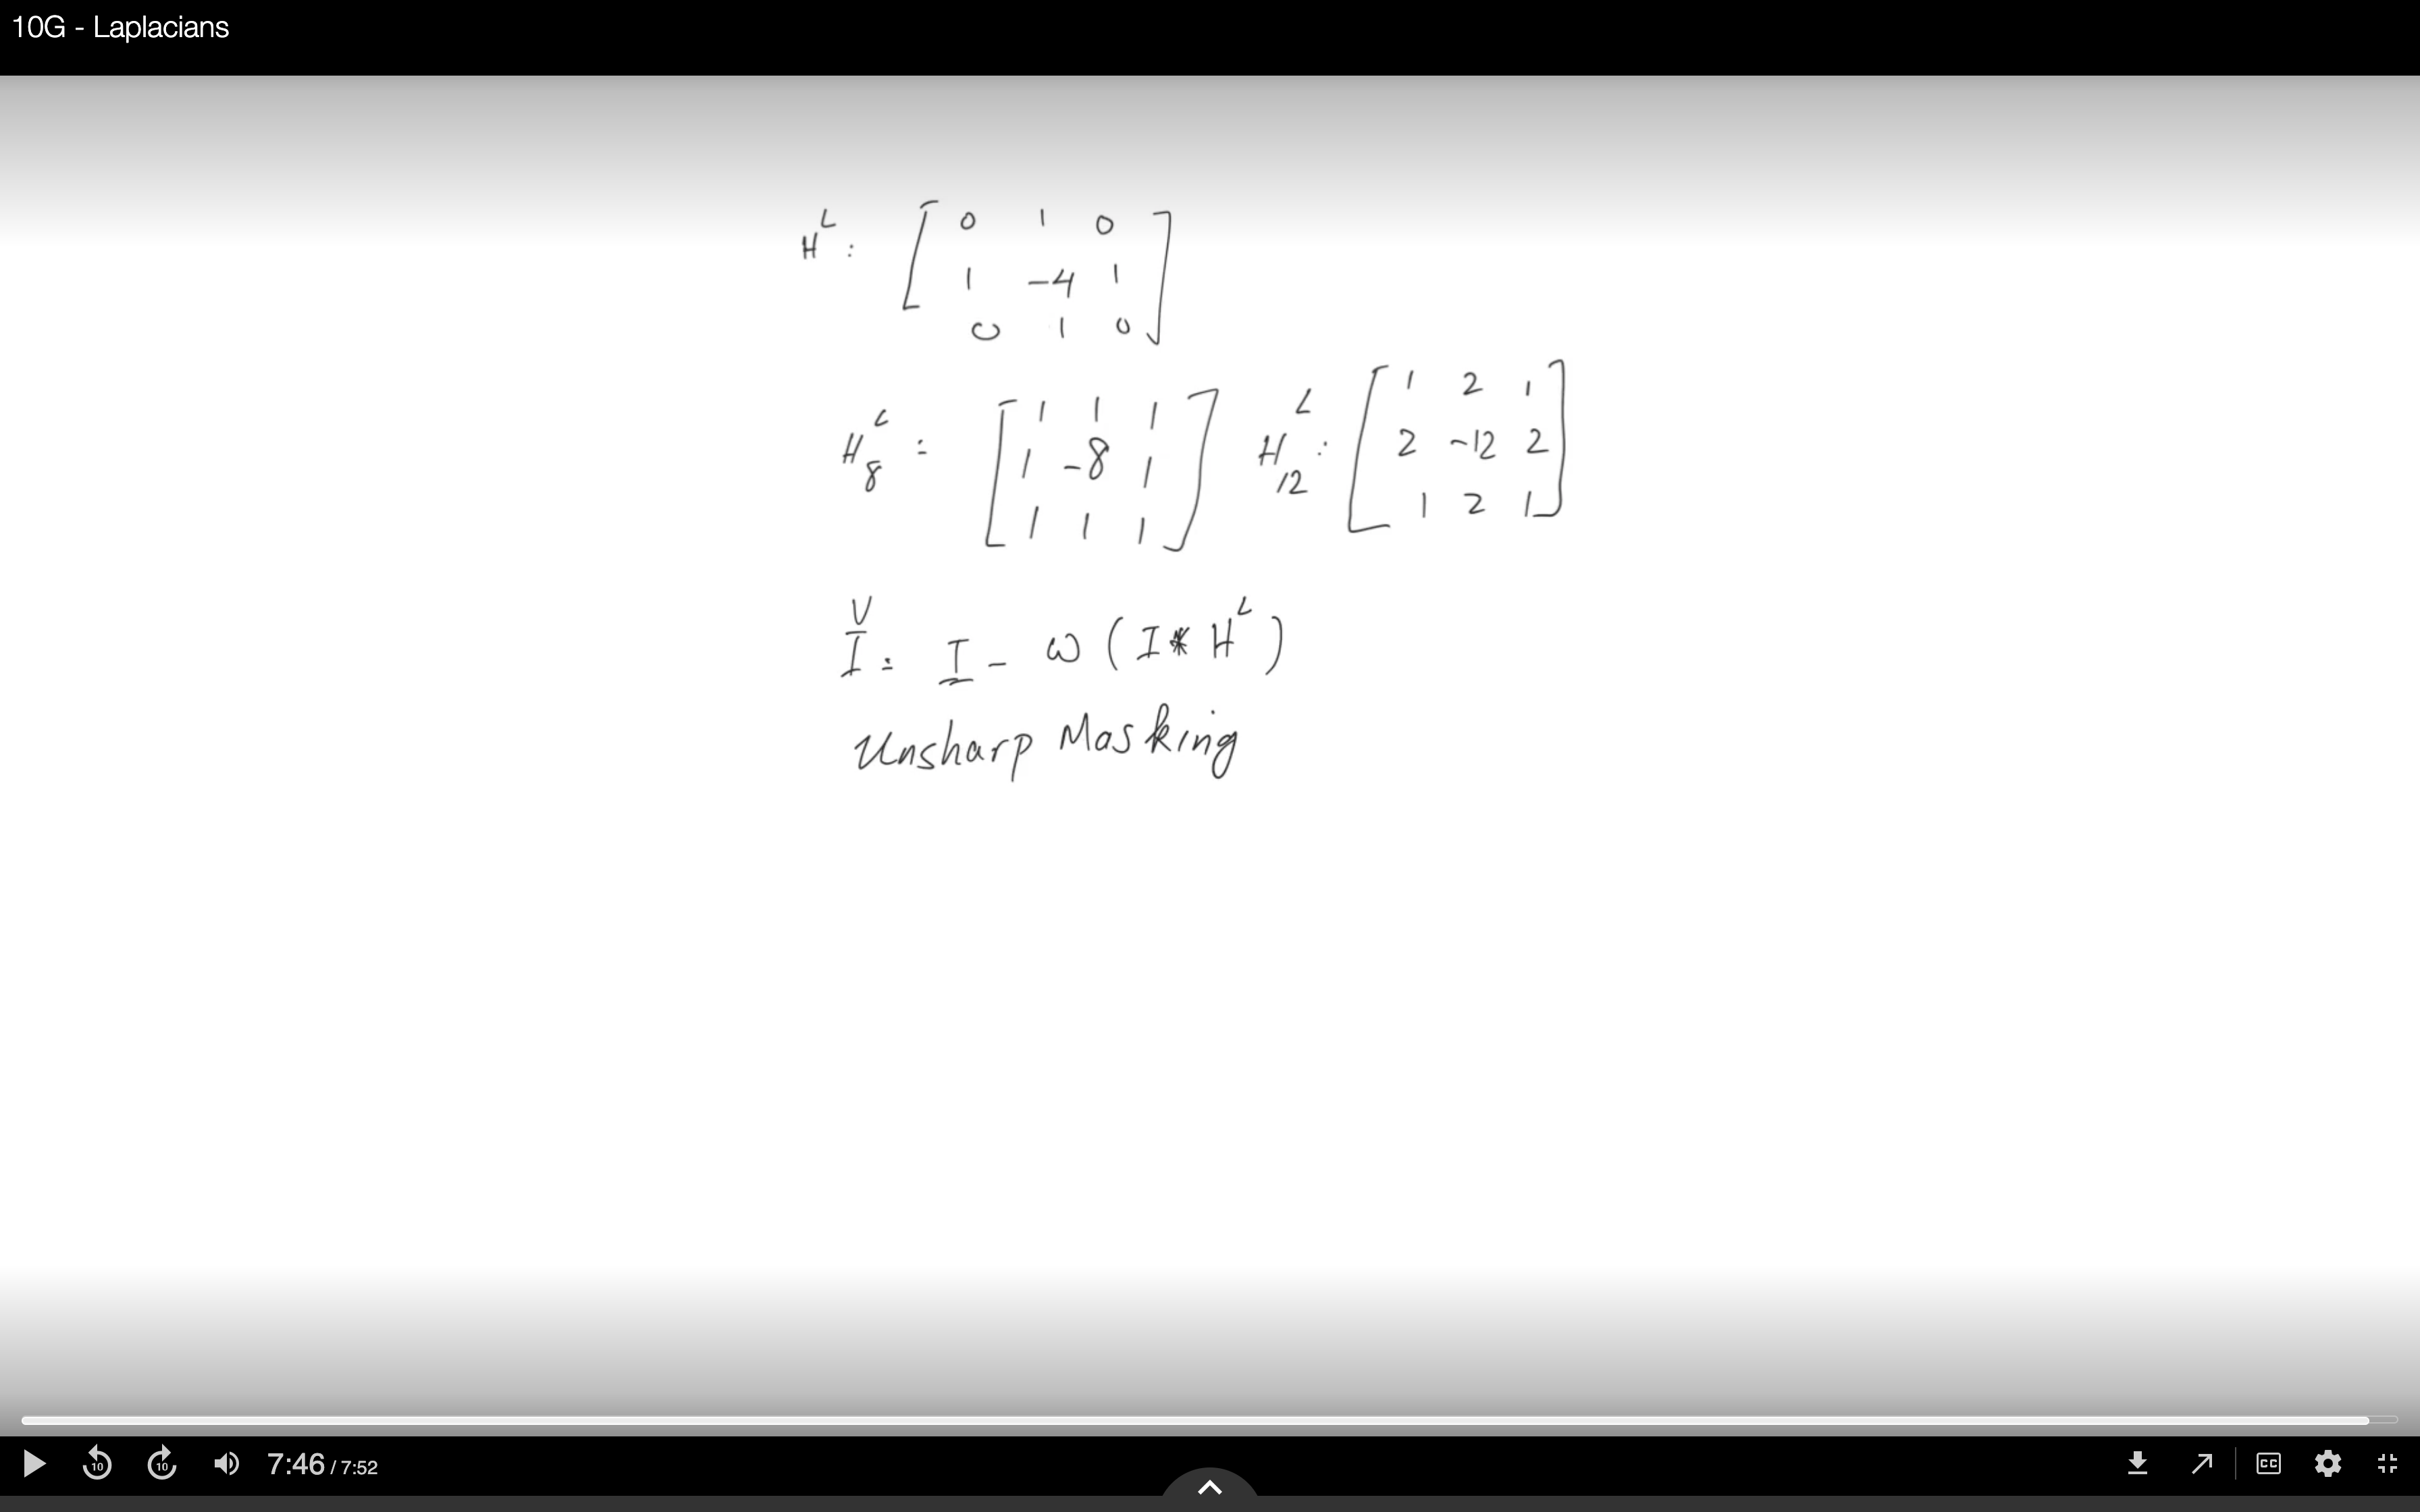 10G - Laplacians
H^L : [ 0 1 0
1 -4 1
0 1 0 ]
H_8^L = [ 1 1 1
1 -8 1
1 1 1 ]
H_12^L : [ 1 2 1
2 -12 2
1 2 1 ]
V
I = I - ω ( I * H^L )
Unsharp Masking
10 10 7:46 / 7:52 CC